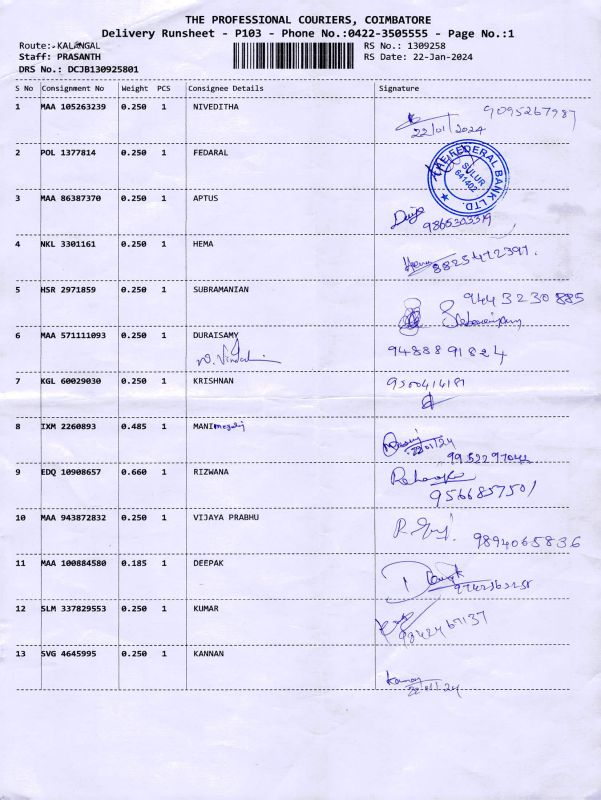 THE PROFESSIONAL COURIERS, COIMBATORE
Delivery Runsheet - P103 - Phone No.:0422-3505555 - Page No.:1
Route:- KALANGAL RS No.: 1309258
Staff: PRASANTH RS Date: 22-Jan-2024
DRS No.: DCJB130925801
S No Consignment No Weight PCS Consignee Details Signature
1 MAA 105263239 0.250 1 NIVEDITHA 9095267987
22/01/2024
2 POL 1377814 0.250 1 FEDARAL
THE FEDERAL BANK LTD.
SULUR
641402
3 MAA 86387370 0.250 1 APTUS
4 NKL 3301161 0.250 1 HEMA
8825472397.
5 HSR 2971859 0.250 1 SUBRAMANIAN 9443230885
6 MAA 571111093 0.250 1 DURAISAMY 9488891824
7 KGL 60029030 0.250 1 KRISHNAN
8 IXM 2260893 0.485 1 MANI
22/01/24
9 EDQ 10908657 0.660 1 RIZWANA
9566857501
10 MAA 943872832 0.250 1 VIJAYA PRABHU
9894065836
11 MAA 100884580 0.185 1 DEEPAK
12 SLM 337829553 0.250 1 KUMAR
9342467137
13 SVG 4645995 0.250 1 KANNAN
22/01/24